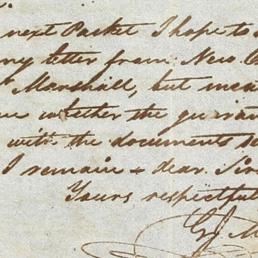 next Packet I hope to
my letter from New O
Marshall, but mea
whether the guaran
with the documents
I remain + dear Sir
Yours respectful
GJ M